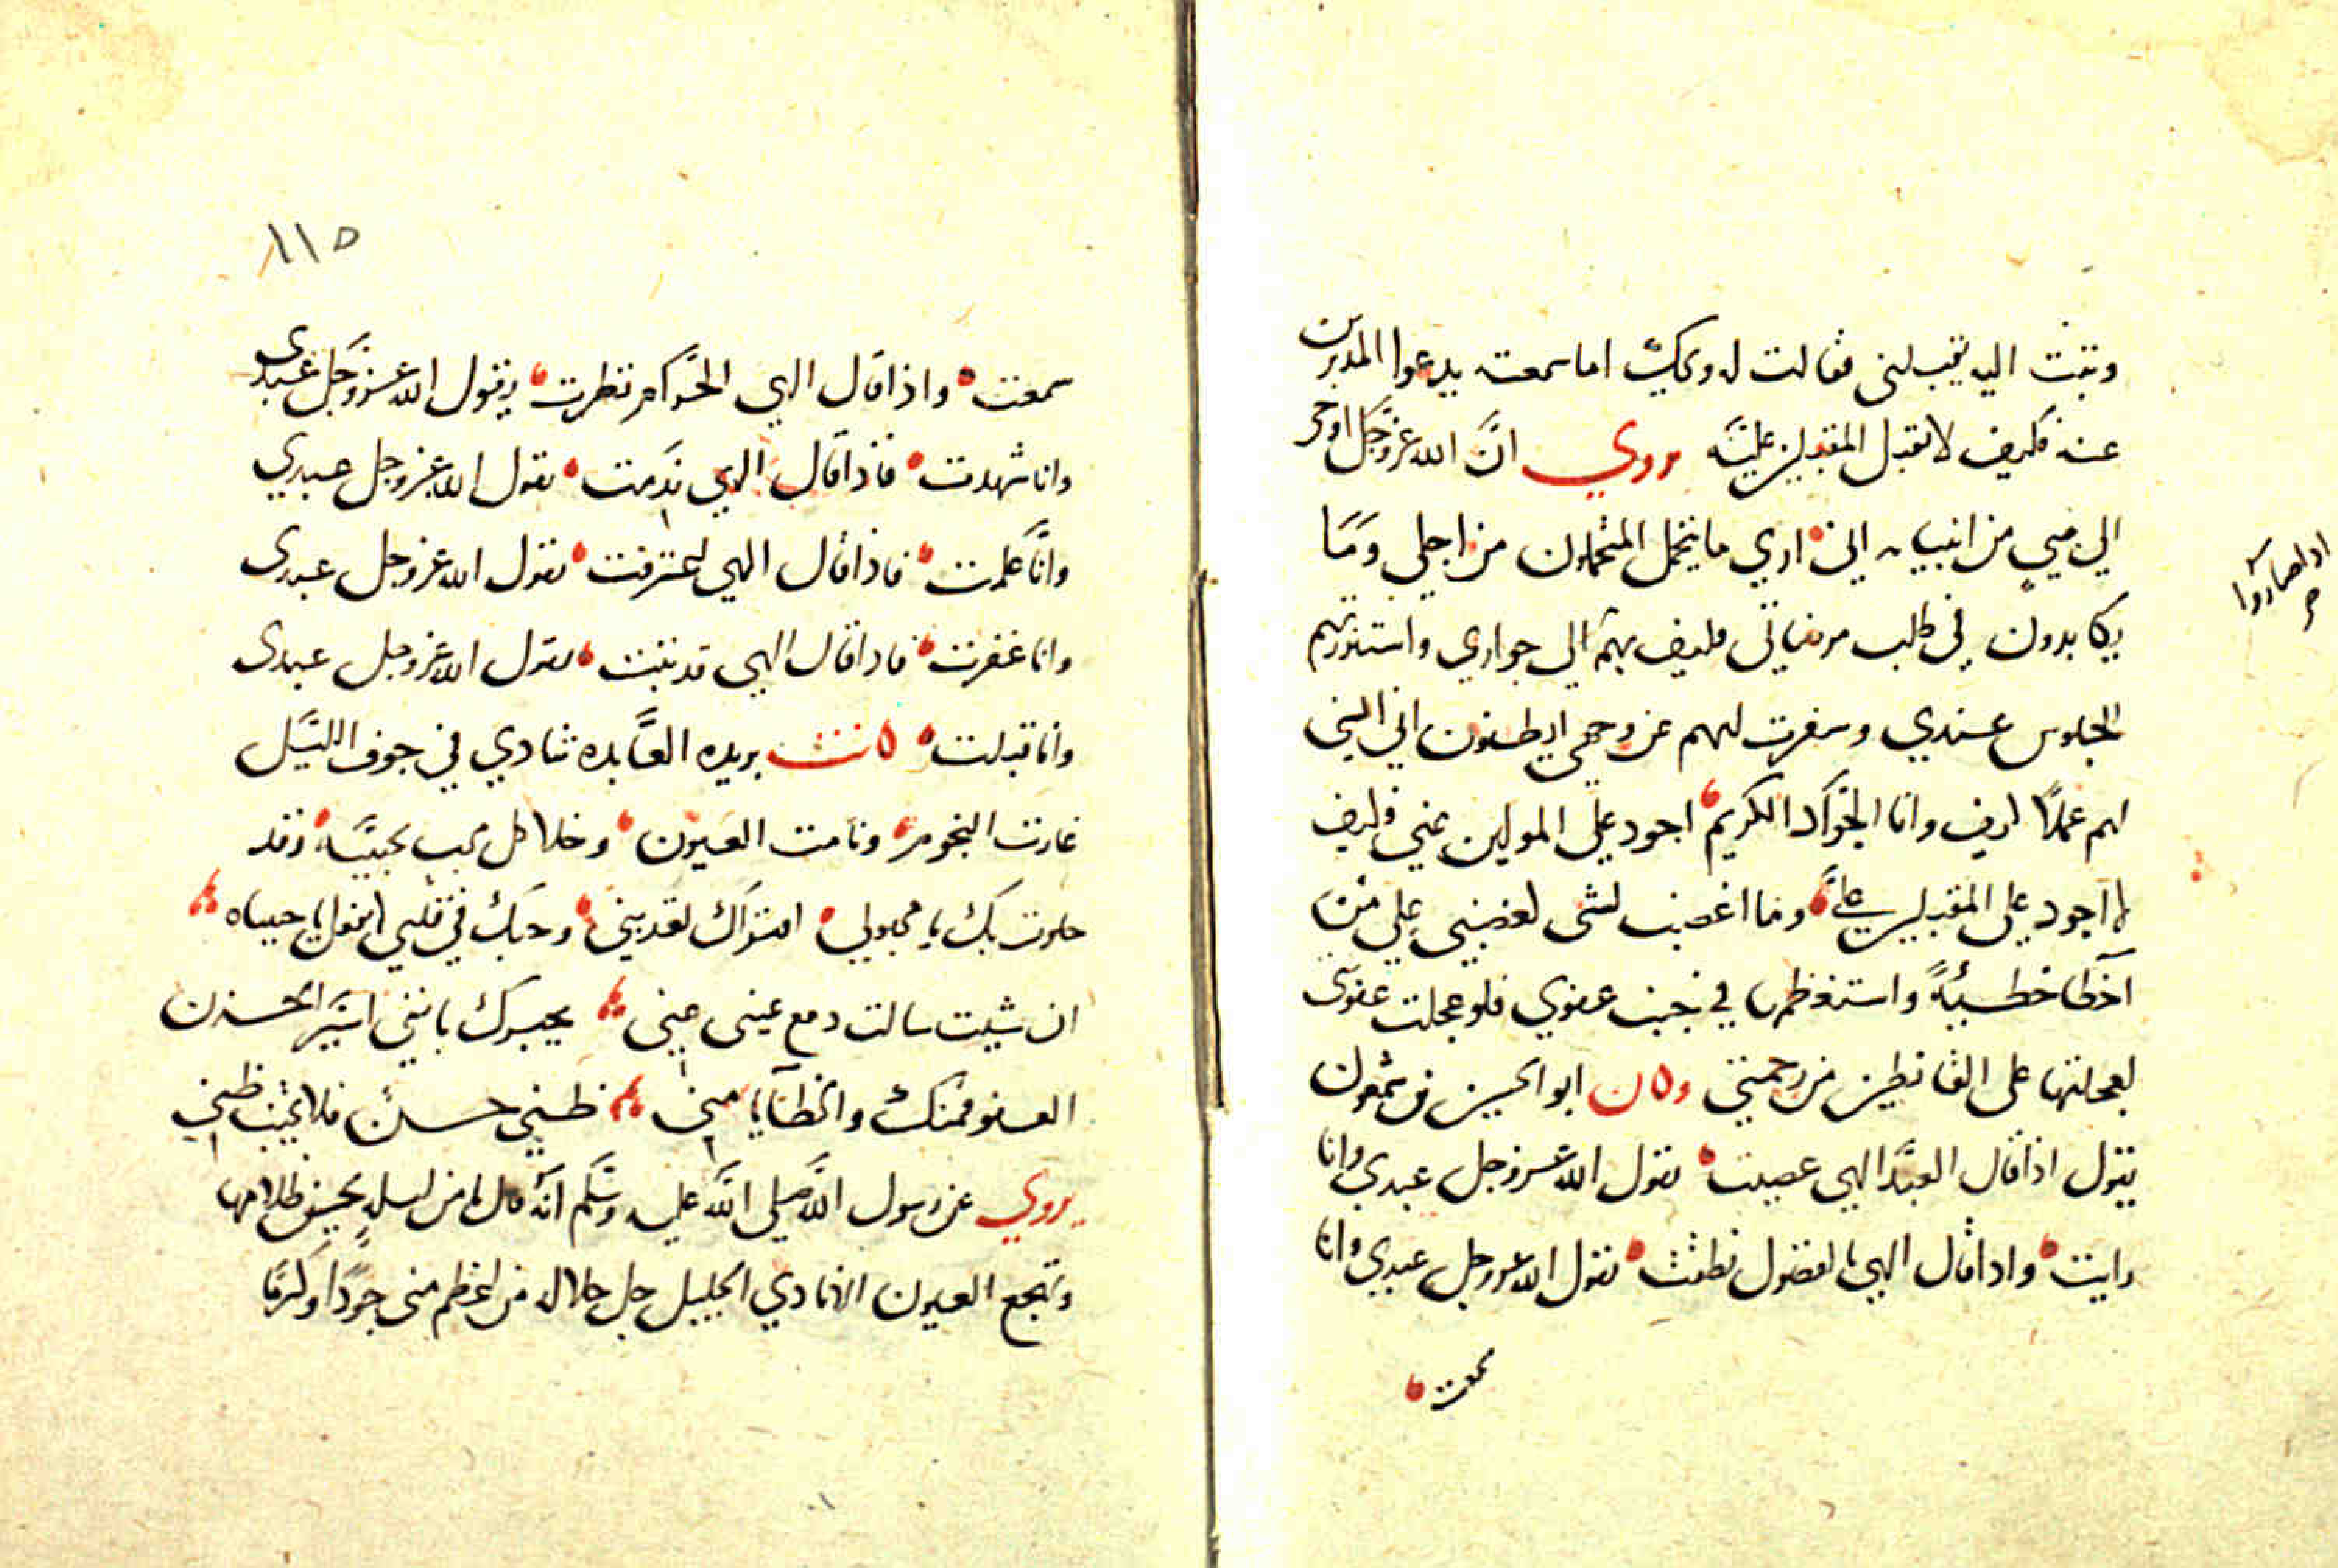 وتبت اليه يقبلني فقالت له ويحك اما سمعته يدعوا المدبرين
عنه فكيف لا يقبل المقبلين عليه روي انّ الله عزّ وجلّ اوحى
الى نبيٍ من انبيايه اني اري ما يتحمل المتحملون من اجلي وما
يكابدون في طلب مرضاتي فكيف بهم الى جواري واستنزرتهم
اذا صاروا
الجلوس عندي وسفرت لهم عن وجهي ايظنون اني انسي
لهم عملاً كيف وانا الجواد الكريم اجود على المولين عني فكيف
لا اجود على المقبلين عليّ وما اغضب لشى كغضبي على من
اخطا خطيئةً واستعظمها في جنب عفوي فلو عجلت عقوبى
لعجلتها على القانطين من رحمتي وكان ابو الحسين بن شمعون
يقول اذا قال العبد الهي عصيت يقول الله عز وجل عبدي وانا
رايت واذا قال الهي الفضول نطقت يقول الله عز وجل عبدي وانا
سمعت
١١٥
سمعت واذا قال الهي الحرام نظرت يقول الله عز وجل عبدي
وانا شهدت فاذا قال الهي ندمت يقول الله عز وجل عبدي
وانا علمت فاذا قال الهي اعترفت يقول الله عز وجل عبدى
وانا غفرت فاذا قال الهي قد تبت يقول الله عز وجل عبدى
وانا قبلت كانت بريده العابده تنادي في جوف الليل
غارت النجوم ونامت العيون وخلا كل محب بحبيبه وقد
خلوت بك يا محبوبي افتراك تعذبني وحبك في قلبي لا تفعل يا حبيباه
ان شيت سالت دمع عينى عنى يخبرك باننى اسير الحزن
العفو منك والخطايا منى ظني حسن فلا تخيب ظني
يروي عن رسول الله صلى الله عليه وسلم انه قال ما من ليله يحسن ظلامها
وتهجع العيون الا نادي الجليل جل جلاله من اعظم منى جودًا وكرمًا